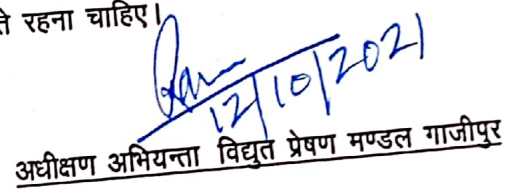 ते रहना चाहिए।
12/10/2021
अधीक्षण अभियन्ता विद्युत प्रेषण मण्डल गाजीपुर